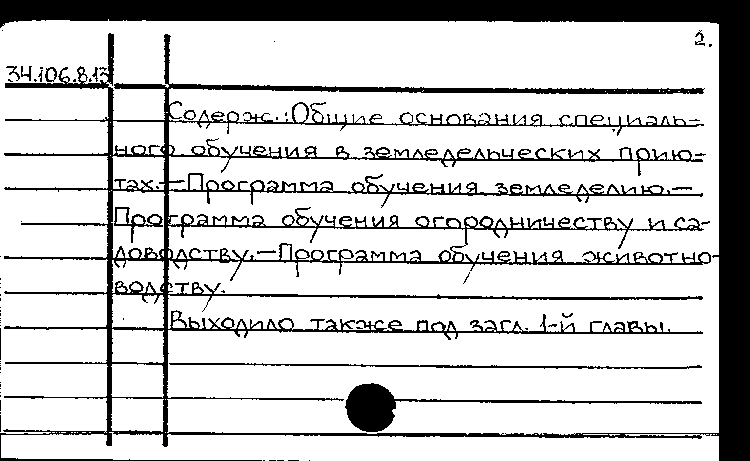 2.
34.106.8.13
Содерж.: Общие основания специаль-
ного обучения в земледельческих прию-
тах.—Программа обучения земледелию.—
Программа обучения огородничеству и са-
доводству.—Программа обучения животно-
водству.
Выходило также под загл. 1-й главы.